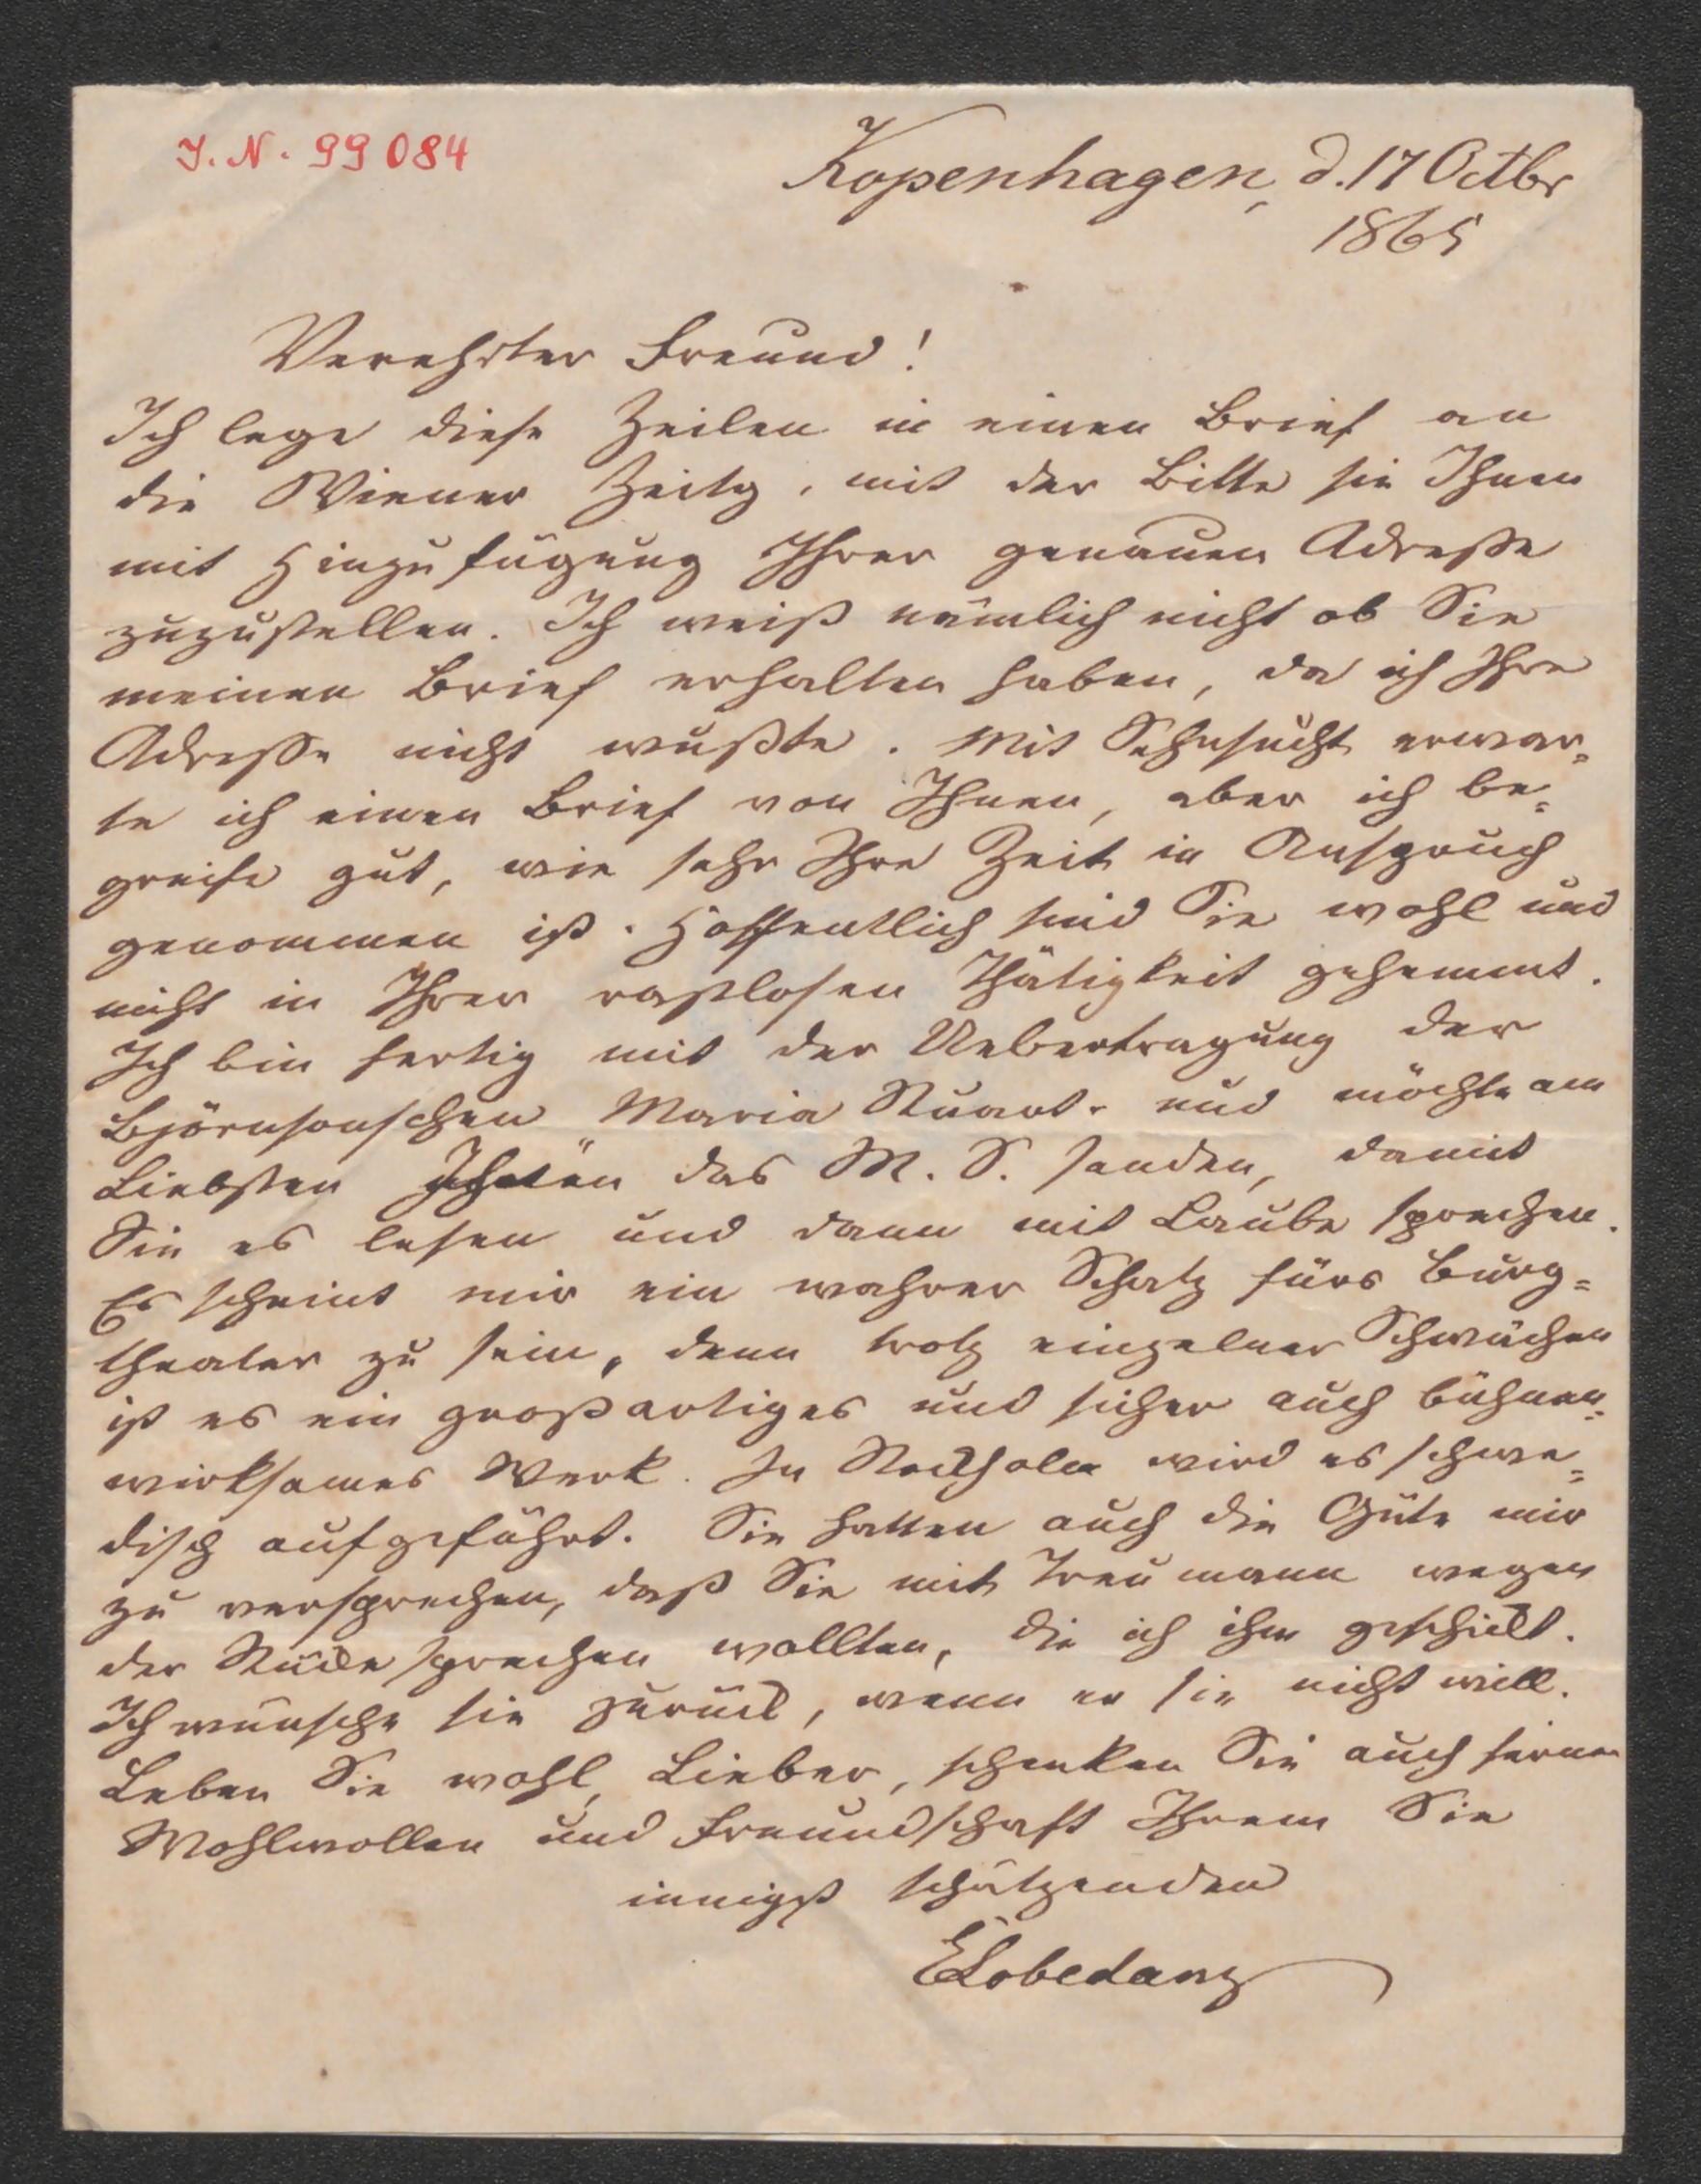 J. N. 99084
Kopenhagen, d. 17 Octbr
1865
Verehrter Freund!
Ich lege diese Zeilen in einen Brief an
die Wiener Zeitg, mit der Bitte sie Ihnen
mit Hinzufügung Ihrer genauen Adresse
zuzustellen. Ich weiß nämlich nicht ob Sie
meinen Brief erhalten haben, da ich Ihre
Adresse nicht wußte. Mit Sehnsucht erwar=
te ich einen Brief von Ihnen, aber ich be=
greife gut, wie sehr Ihre Zeit in Anspruch
genommen ist. Hoffentlich sind Sie wohl und
nicht in Ihrer rastlosen Thätigkeit gehemmt.
Ich bin fertig mit der Uebertragung der
Björnsonschen Maria Stuart. und möchte am
Liebsten Ihnen das M. S. senden, damit
Sie es lesen und dann mit Laube sprechen.
Es scheint mir ein wahrer Schatz fürs Burg=
theater zu sein, denn trotz einzelner Schwächen
ist es ein großartiges und sicher auch bühnen=
wirksames Werk. In Stockholm wird es schwe=
disch aufgeführt. Sie hatten auch die Güte mir
zu versprechen, daß Sie mit Treumann wegen
der Stücke sprechen wollten, die ich ihm geschickt.
Ich wünsche sie zurück, wenn er sie nicht will.
Leben Sie wohl, Lieber, schenken Sie auch ferner
Wohlwollen und Freundschaft Ihrem Sie
innigst schätzenden
ELobedanz